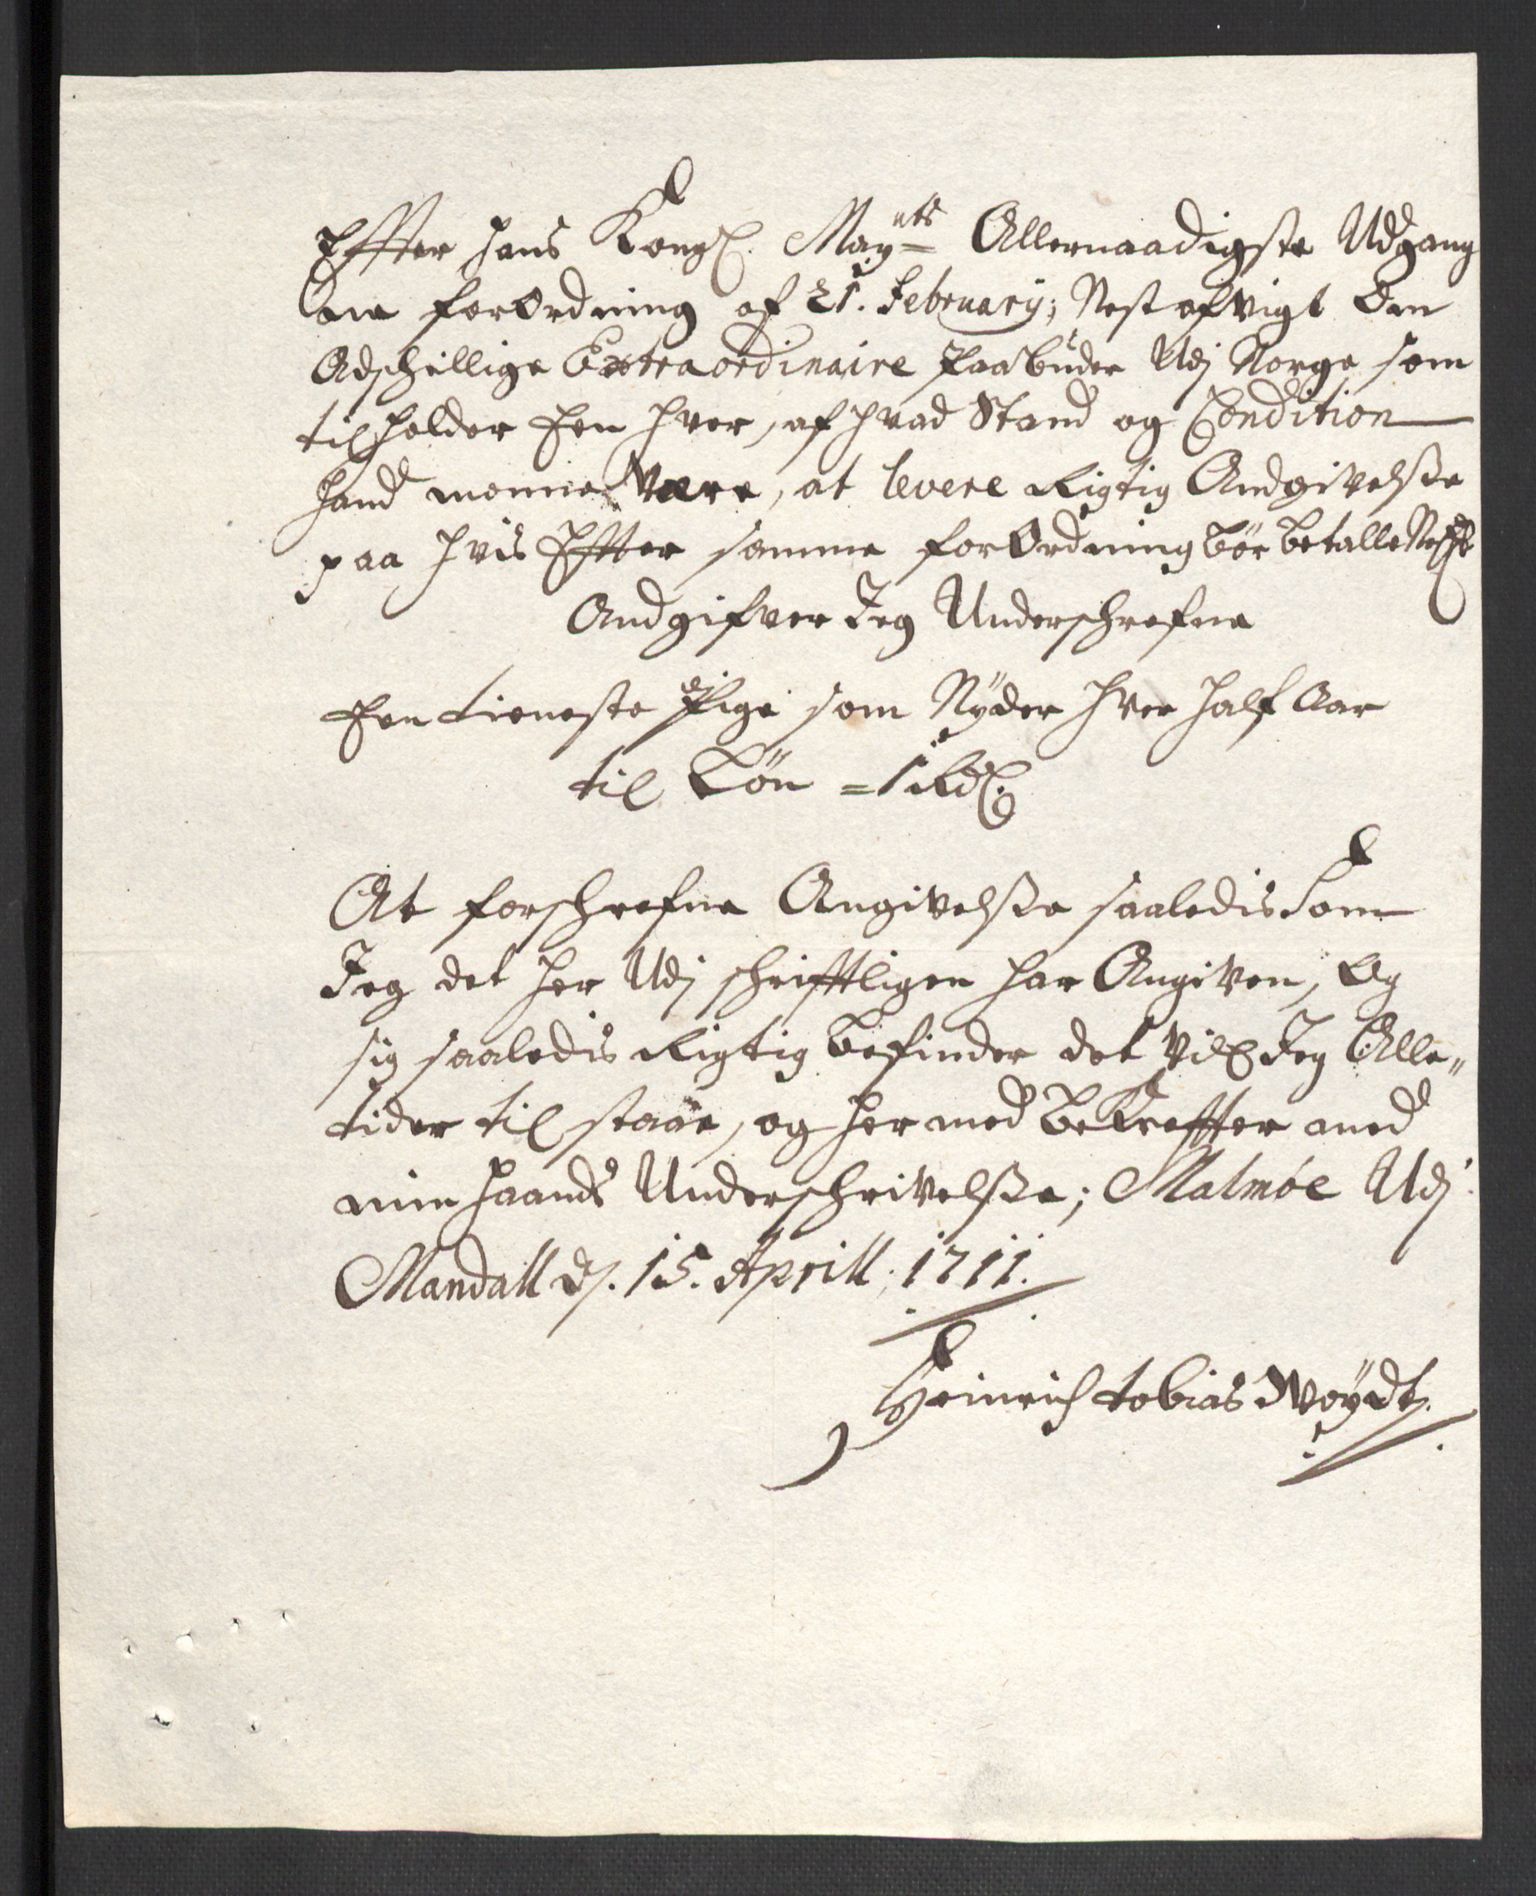 Effter hans Kongl. Mayts Allernaadigste Udgang
ne forordning af 21. February; Nest afvigt Om
Adschillige Extraordinaire Paabuder Udj Norge som
tilholder Een hver, af hvad Stand og Condition
hand monne være, at levere Rigtig Andgivelsse
paa hvis Effter samme forOrdning bør betalle
Andgifver Jeg Underschrefne
Een tieneste Pige som Nÿder hver half Aar
til Løn = 1 Rdl.
At forschrefne Angivelsse saaledis Som
Jeg det her Udj schrifftligen har Angiven, Og
sig saaledis Rigtig befinder det vil Jeg Alle„
tider til staae, og her med bekreffter med
min haands Underschrivelsse; Malmöe Udj
Mandall d. 15. Aprill. 1711.
Heinrich tobias Woÿdt.